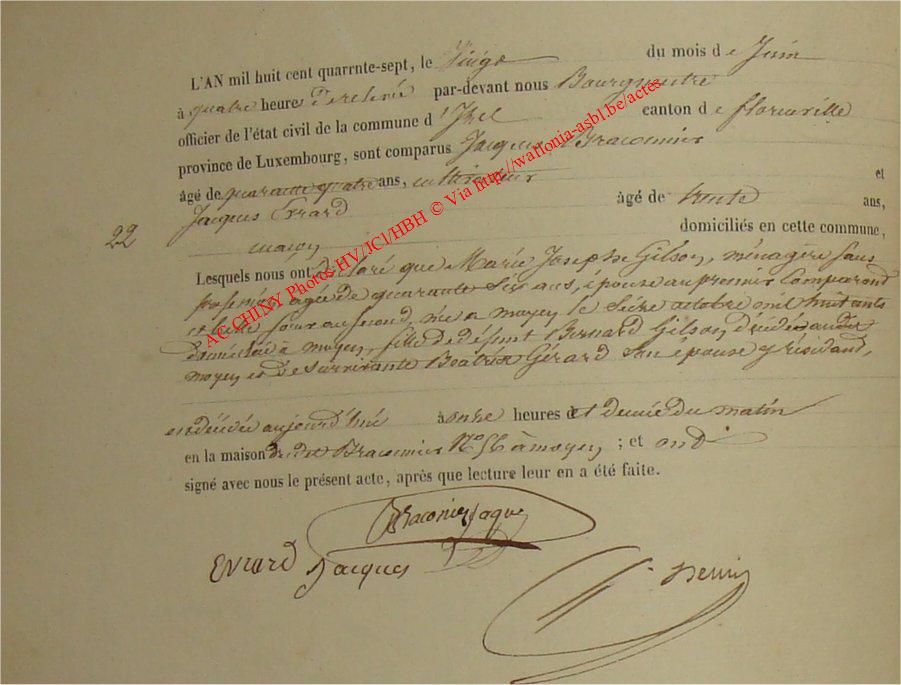 L'AN mil huit cent quarrnte-sept, le Vingt du mois de Juin
à quatre heures de relevé par-devant nous Bourgmestre
officier de l'état civil de la commune d'Izel canton de florenville
province de Luxembourg, sont comparus Jacques Braconnier
âgé de quarante quatre ans, cultivateur et
Jacques Evrard âgé de trente ans,
22
maçon domiciliés en cette commune,
Lesquels nous ont déclaré que Marie Joseph Gilson, ménagère sans
âgée de quarante six ans, épouse au premier Comparant
et belle soeur au second, née a moyen le seize octobre mil huit cents
domiciliée à moyen, fille de défunt Bernard Gilson décédé audit
moyen et de survivante Beatrix Gérard son épouse y résidant,
est décédée aujourd'hui à onze heures et demie du matin
en la maison dudit Braconnier No à moyen ; et ont
signé avec nous le présent acte, après que lecture leur en a été faite.
Braconier Jaque
Evrard Jacques
AC CHINY Photos HV/JCI/HBH © Via http://wallonia-asbl.be/actes